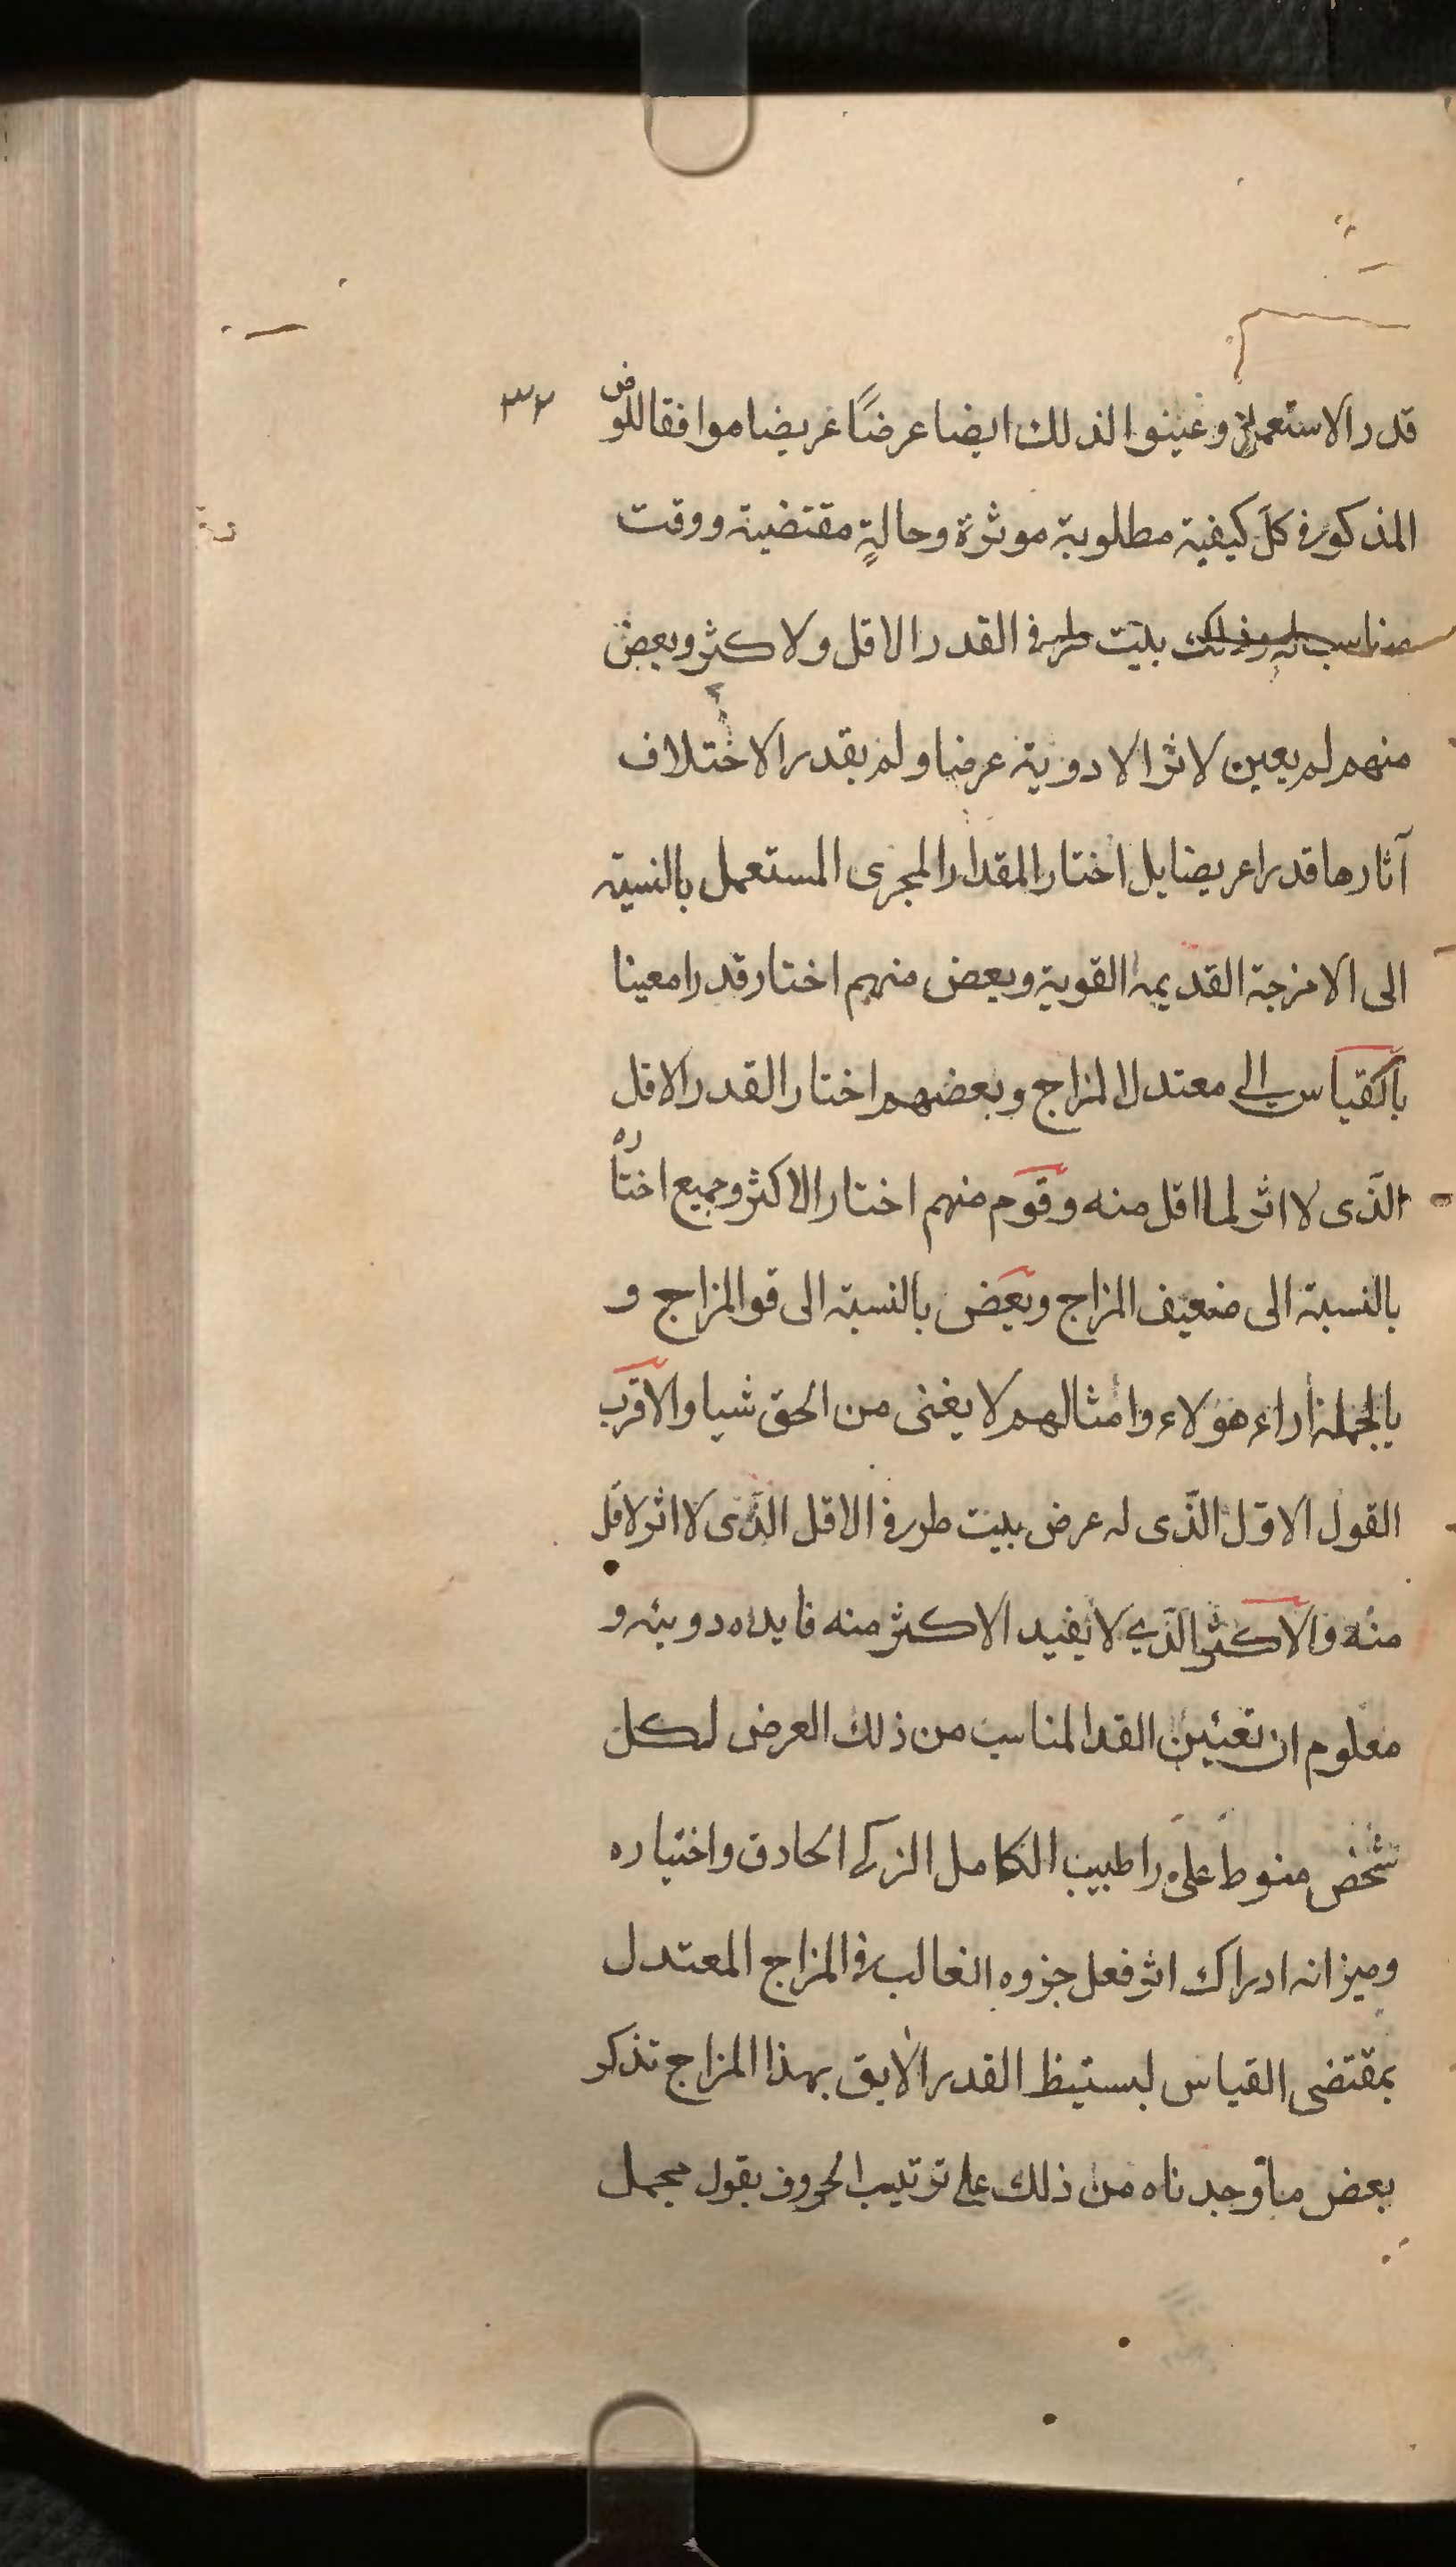 ٣٢
قدر الاستعمال وعينوا لذلك ايضا عرضًا عريضا موافقا للوض
المذكور فى كلّ كيفية مطلوبة موثرة وحالةٍ مقتضية ووقت
مناسب له وذلك بليت طرفى القدر الاقل ولاكثر وبعض
منهم لم يعين لاثر الادوية عرضا ولم يقدر الاختلاف
آثارها قدرا عريضا بل اختار المقدار المجرى المستعمل بالنسبة
الى الامزجة القديمة القوية وبعض منهم اختار قدرا معينا
بالقياس الى معتدل المزاج وبعضهم اختار القدر الاقل
الّذى لا اثر لما اقل منه وقوم منهم اختار الاكثر وجميع اختاره
بالنسبة الى ضعيف المزاج وبعض بالنسبة الى قو المزاج و
بالجملة أراء هولاء وامثالهم لا يغنى من الحق شيا والاقرب
القول الاوّل الّذى له عرض بليت طرفى الاقل الّذى لا اثر لاقل
منه والاكثر الّذي لا يفيد الاكثر منه فايده دويئه و
معلوم ان تعئين القدا المناسب من ذلك العرض لكل
شخص منوط على راطبيب الكامل الزكى الحادق واختياره
وميزانه ادراك اثر فعل جزوه الغالب فى المزاج المعتدل
بمقتضى القياس ليستيظ القدر الايق بهذا المزاج تذكر
بعض ما وجدناه من ذلك على ترتيب الحروف بقول مجمل